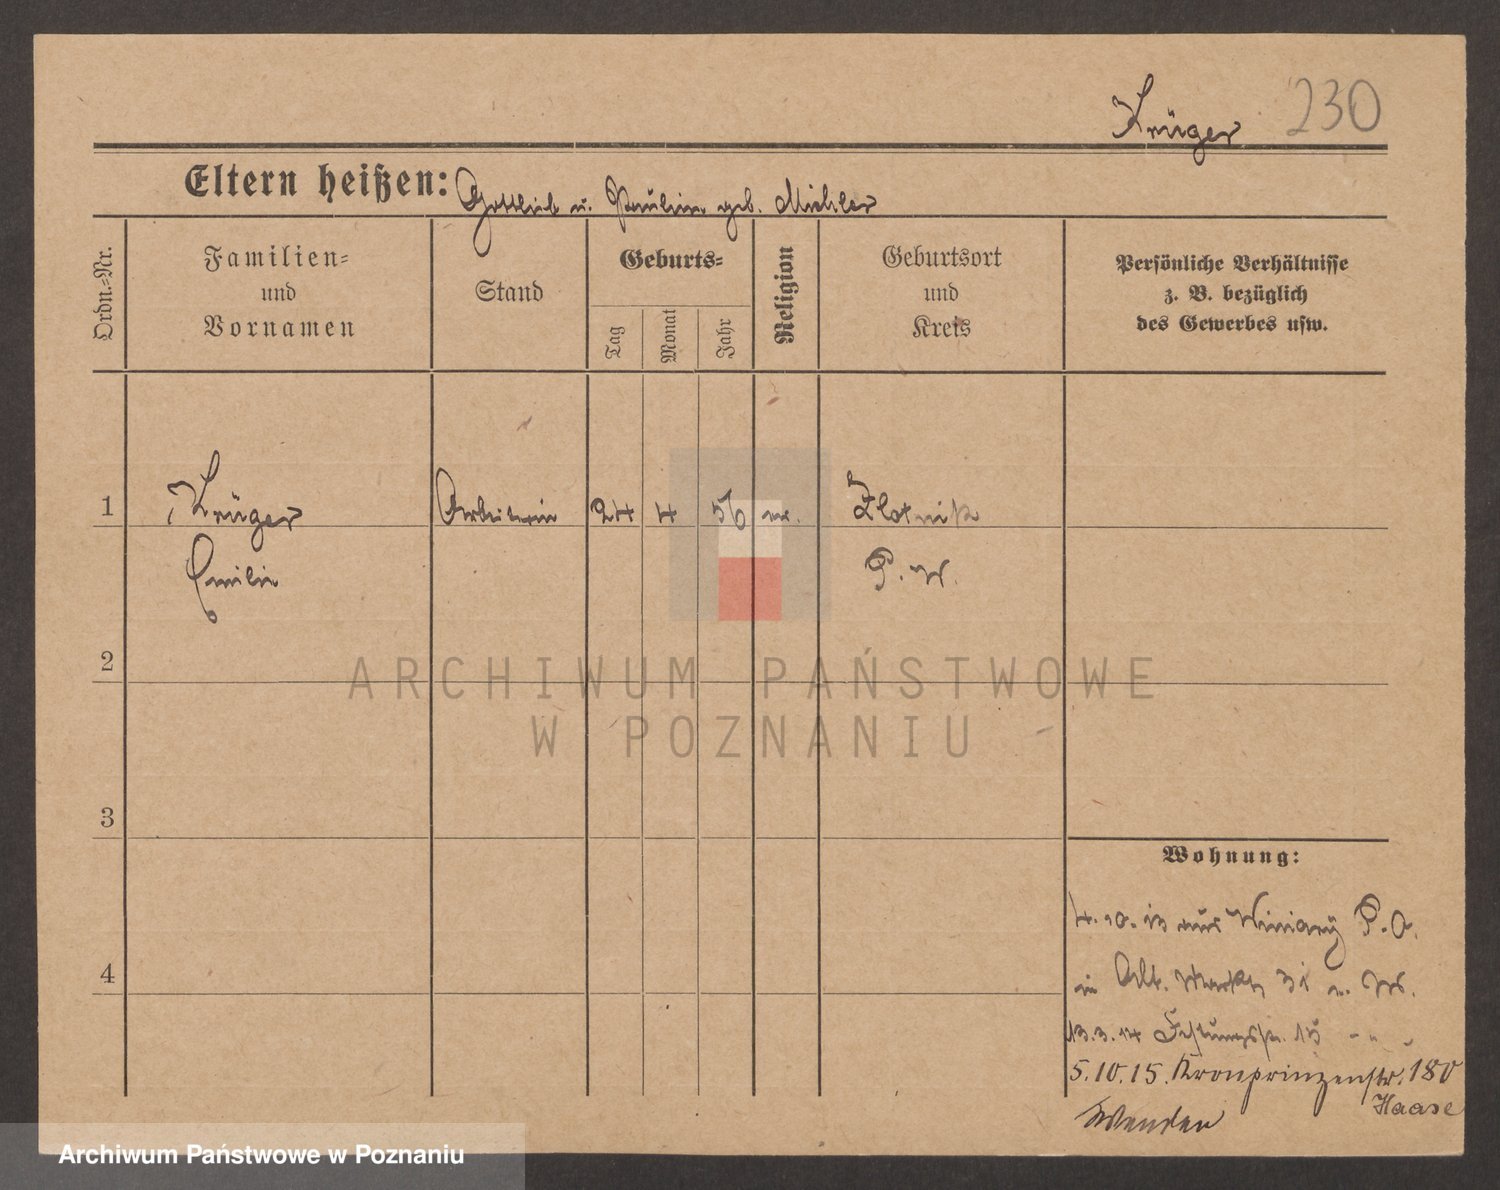 Krüger 230
Eltern heißen: Gottlieb u. Paulin geb. Michler
Ordn.-Nr.
Familien-
und
Vornamen
Stand
Geburts-
Tag
Monat
Jahr
Religion
Geburtsort
und
Kreis
Persönliche Verhältnisse
z. B. bezüglich
des Gewerbes usw.
1 Krüger Arbeiterin 24 4 56 ev. Zlotnik
Emilie P. W.
2
3
4
Wohnung:
4. 10. 13 aus Winiary P. O.
in Alt. Markt 31 b. W.
13.3.14 Festungsstr. 15 - " -
5.10.15. Kronprinzenstr. 180
Haase
Wenden
ARCHIWUM PAŃSTWOWE
W POZNANIU
Archiwum Państwowe w Poznaniu